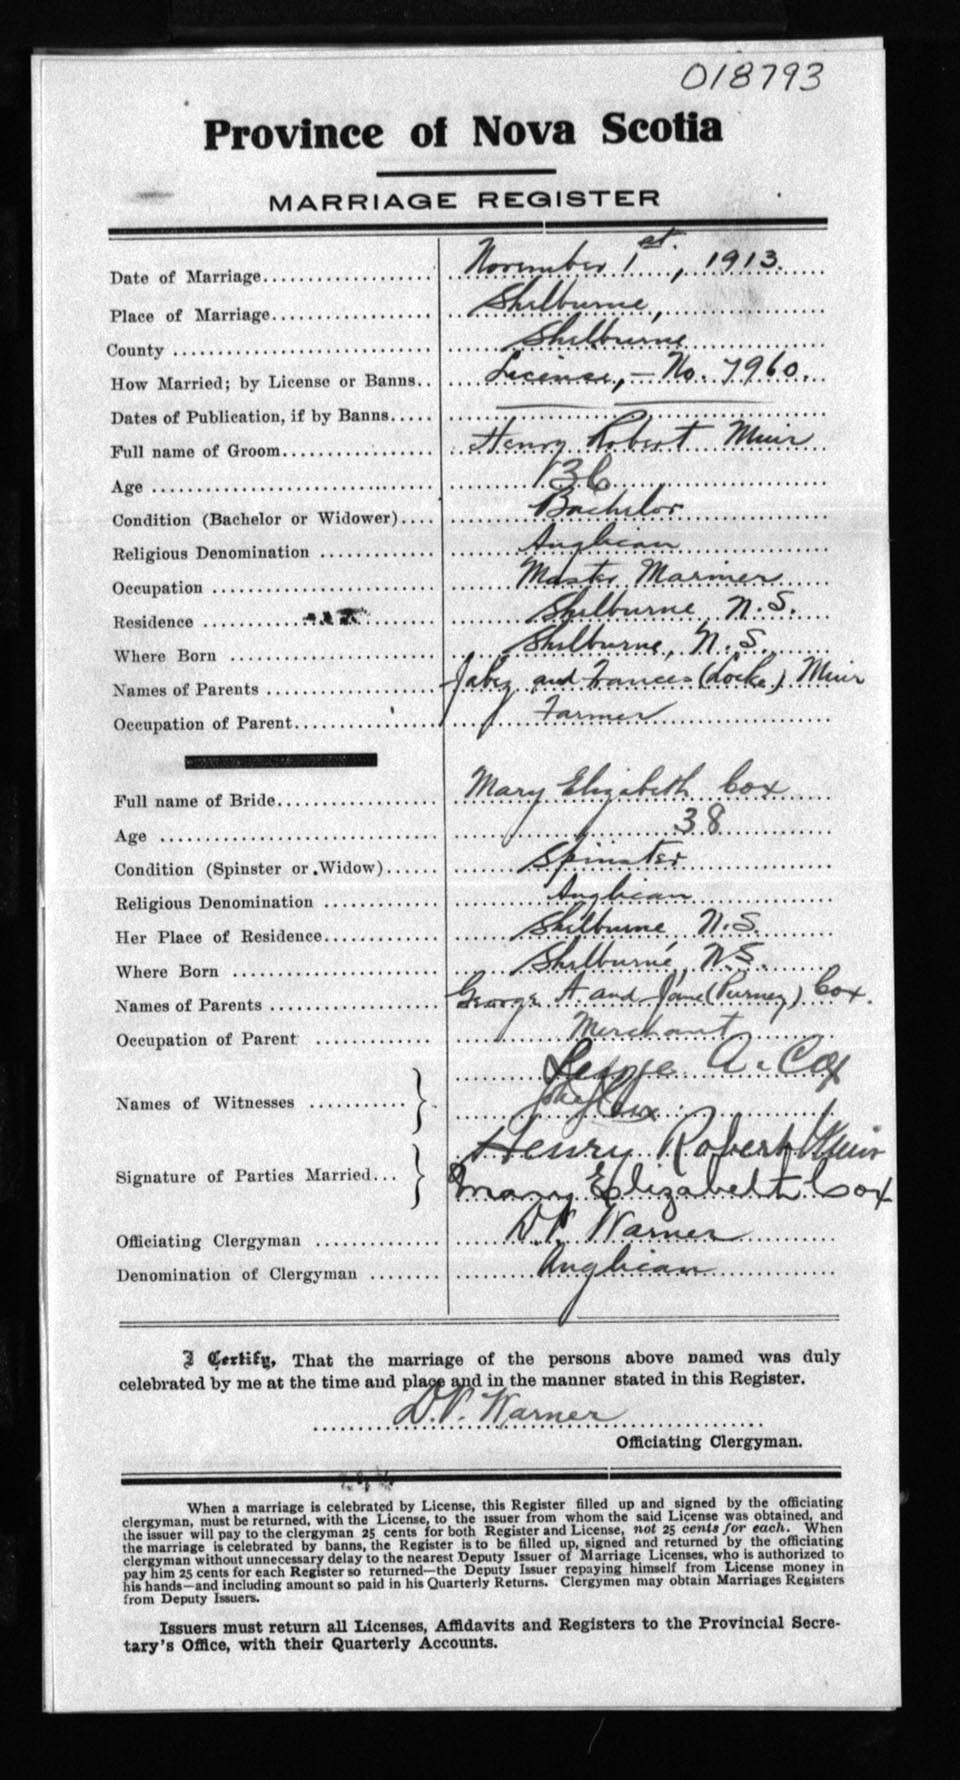 018793
Province of Nova Scotia
MARRIAGE REGISTER
Date of Marriage November 1st, 1913.
Place of Marriage Shelburne,
County Shelburne
How Married; by License or Banns License, - No. 7960.
Dates of Publication, if by Banns
Full name of Groom Henry Robert Muir
Age 36
Condition (Bachelor or Widower) Bachelor
Religious Denomination Anglican
Occupation Master Mariner
Residence Shelburne N.S.
Where Born Shelburne, N.S.
Names of Parents Jabez and Frances (Locke) Muir
Occupation of Parent Farmer
Full name of Bride Mary Elizabeth Cox
Age 38
Condition (Spinster or Widow) Spinster
Religious Denomination Anglican
Her Place of Residence Shelburne, N.S.
Where Born Shelburne, N.S.
Names of Parents George A and Jane (Purney) Cox.
Occupation of Parent Merchant
George A. Cox
Names of Witnesses Cox
Henry Robert Muir
Signature of Parties Married
Mary Elizabeth Cox
Officiating Clergyman D.V. Warner
Denomination of Clergyman Anglican
I Certify, That the marriage of the persons above named was duly
celebrated by me at the time and place and in the manner stated in this Register.
D.V. Warner
Officiating Clergyman.
When a marriage is celebrated by License, this Register filled up and signed by the officiating
clergyman, must be returned, with the License, to the issuer from whom the said License was obtained, and
the issuer will pay to the clergyman 25 cents for both Register and License, not 25 cents for each. When
the marriage is celebrated by banns, the Register is to be filled up, signed and returned by the officiating
clergyman without unnecessary delay to the nearest Deputy Issuer of Marriage Licenses, who is authorized to
pay him 25 cents for each Register so returned—the Deputy Issuer repaying himself from License money in
his hands—and including amount so paid in his Quarterly Returns. Clergymen may obtain Marriages Registers
from Deputy Issuers.
Issuers must return all Licenses, Affidavits and Registers to the Provincial Secre-
tary's Office, with their Quarterly Accounts.